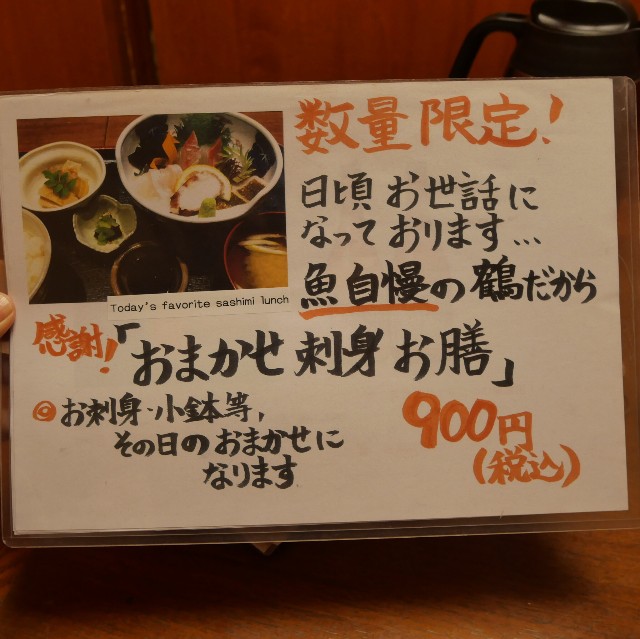 数量限定!
日頃 お世話に
なって おります...
魚自慢の鶴だから
Today's favorite sashimi lunch
感謝!
「おまかせ刺身お膳」
◎お刺身・小鉢等,
その日のおまかせに
なります
900円
(税込)